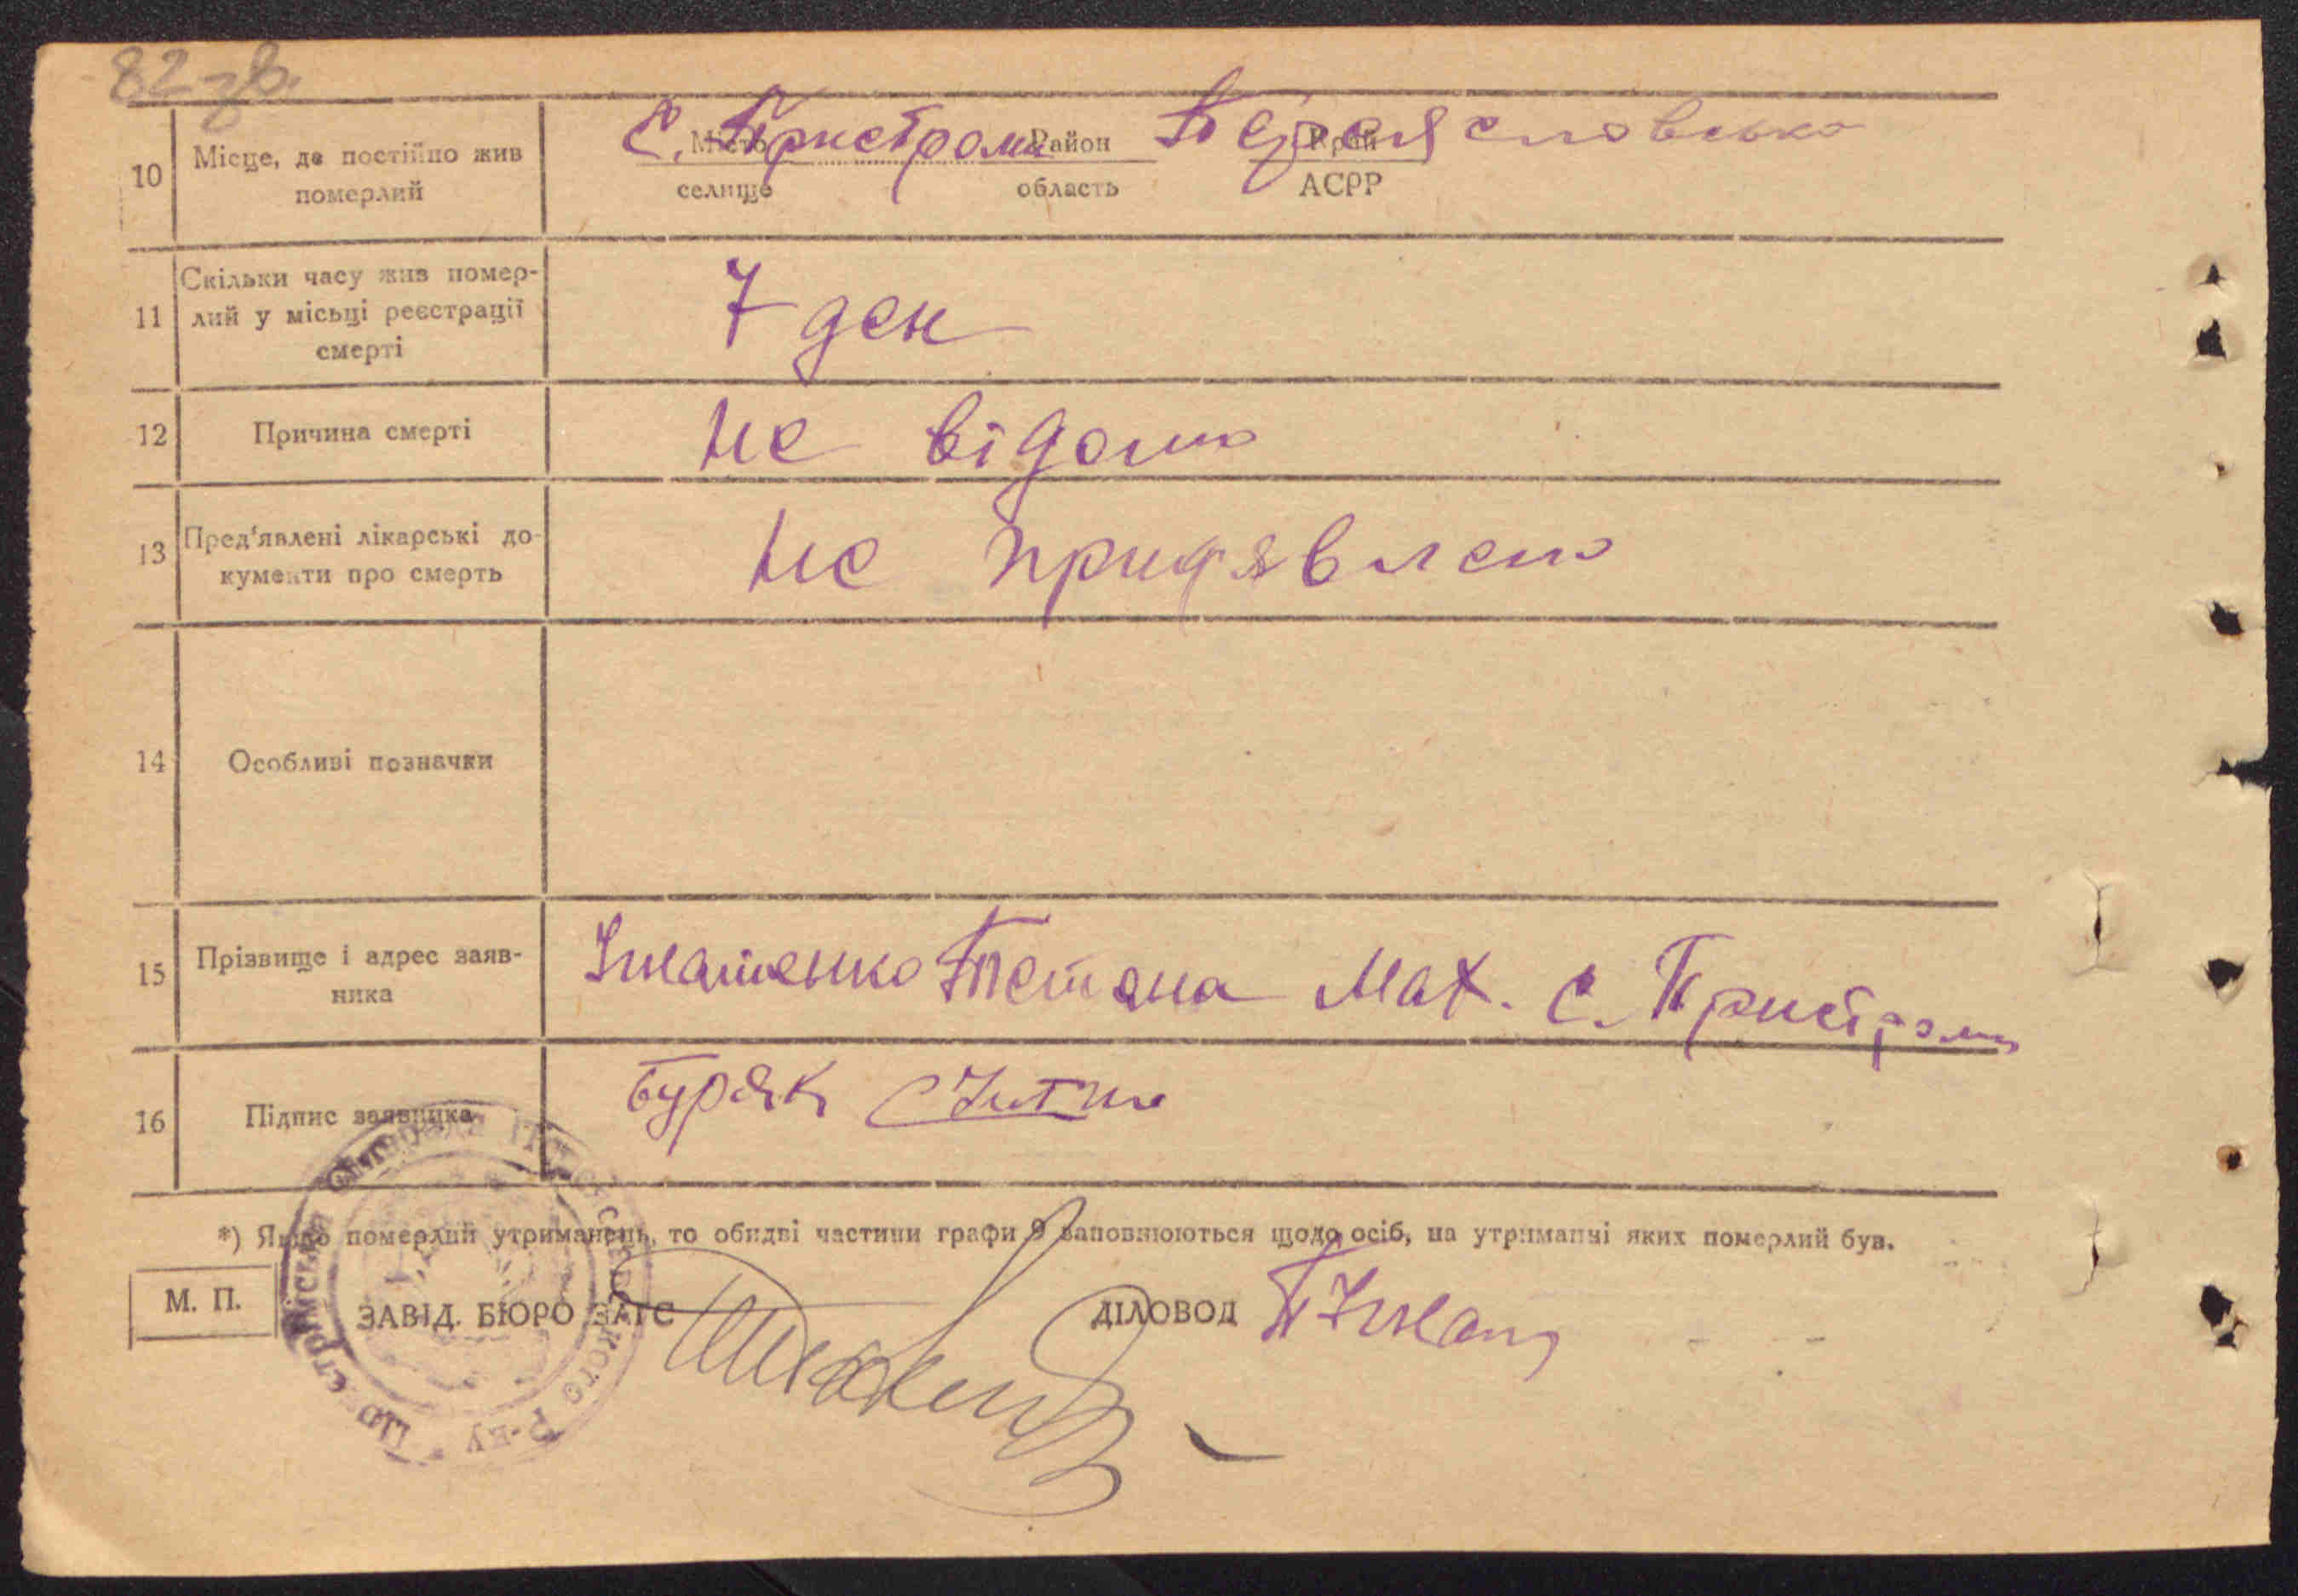 82 зв.
10 Місце, де постійно жив померлий
с. Пристроми Переяславсько
Місто Район Край
селище область АСРР
11 Скільки часу жив помер-
лий у місці реєстрації
смерті
7 ден
12 Причина смерті
не відомо
13 Пред'явлені лікарські до-
кументи про смерть
не придявлено
14 Особливі позначки
15 Прізвище і адрес заяв-
ника
Ігнатенко Тетяна Мах. с. Пристроми
16 Підпис заявника
Буряк
*) Якщо померлий утриманець, то обидві частини графи 9 заповнюються щодо осіб, на утриманні яких померлий був.
М. П.
ЗАВІД. БЮРО ЗАГС
ДІЛОВОД